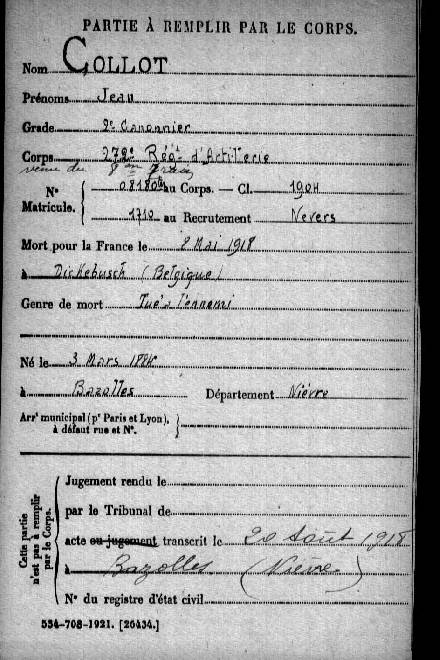 PARTIE À REMPLIR PAR LE CORPS.
Nom COLLOT
Prénoms Jean
Grade 2e Canonnier
Corps 272e Régt d'Artillerie
venu du 8em
Nos Matricule.
08180 au Corps. — Cl. 1904
1710 au Recrutement Nevers
Mort pour la France le 2 Mai 1918
à Dickebusch (Belgique)
Genre de mort Tué à l'ennemi
Né le 3 Mars 1884
à Bazolles Département Nièvre
Arrt municipal (pr Paris et Lyon), à défaut rue et No.
Cette partie n'est pas à remplir par le Corps.
Jugement rendu le
par le Tribunal de
acte ou jugement transcrit le 20 Août 1918
à Bazolles (Nièvre)
No du registre d'état civil
534-708-1921. [26434.]